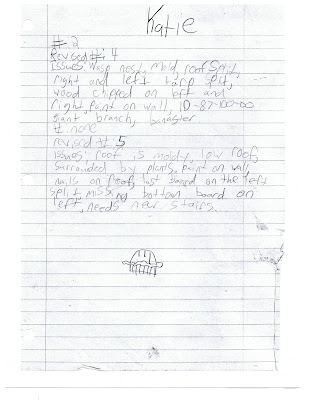 Katie
# 2
Revised #: 4
Issues: wasp nest, mold, roof split,
right and left tarp split,
wood chipped on left and
right, paint on wall, 10-87-100-00
giant branch, banaster.
#: none
revised #: 5
issues: roof is moldy, low roof,
surrounded by plants, paint on wall,
nails on floor, last board on the left
split, missing bottom board on
left, needs new stairs.